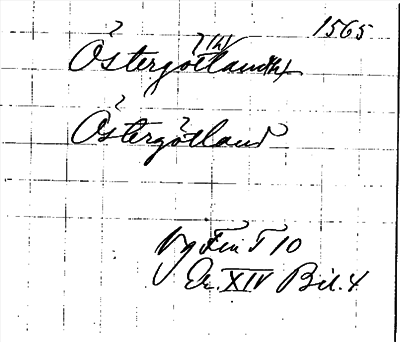 1565
Östergötland
Östergötland
Vg Fin T 10
Er. XIV Bil. 4